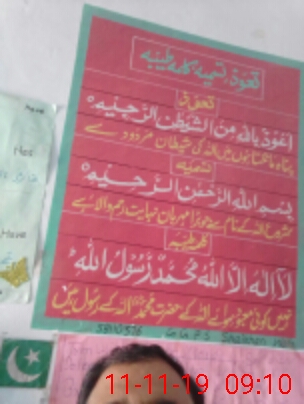 تعوذ، تسمیہ، کلمہ طیبہ
تعوذ
اَعُوْذُ بِاللّٰهِ مِنَ الشَّيْطٰنِ الرَّجِيْمِ
پناہ مانگتا ہوں میں اللہ کی شیطان مردود سے
تسمیہ
بِسْمِ اللّٰهِ الرَّحْمٰنِ الرَّحِيْمِ
شروع اللہ کے نام سے جو بڑا مہربان نہایت رحم والا ہے
کلمہ طیبہ
لَآ اِلٰهَ اِلَّا اللّٰهُ مُحَمَّدٌ رَّسُوْلُ اللّٰهِ
نہیں کوئی معبود سوائے اللہ کے حضرت محمد ﷺ اللہ کے رسول ہیں
Have
11-11-19 09:10